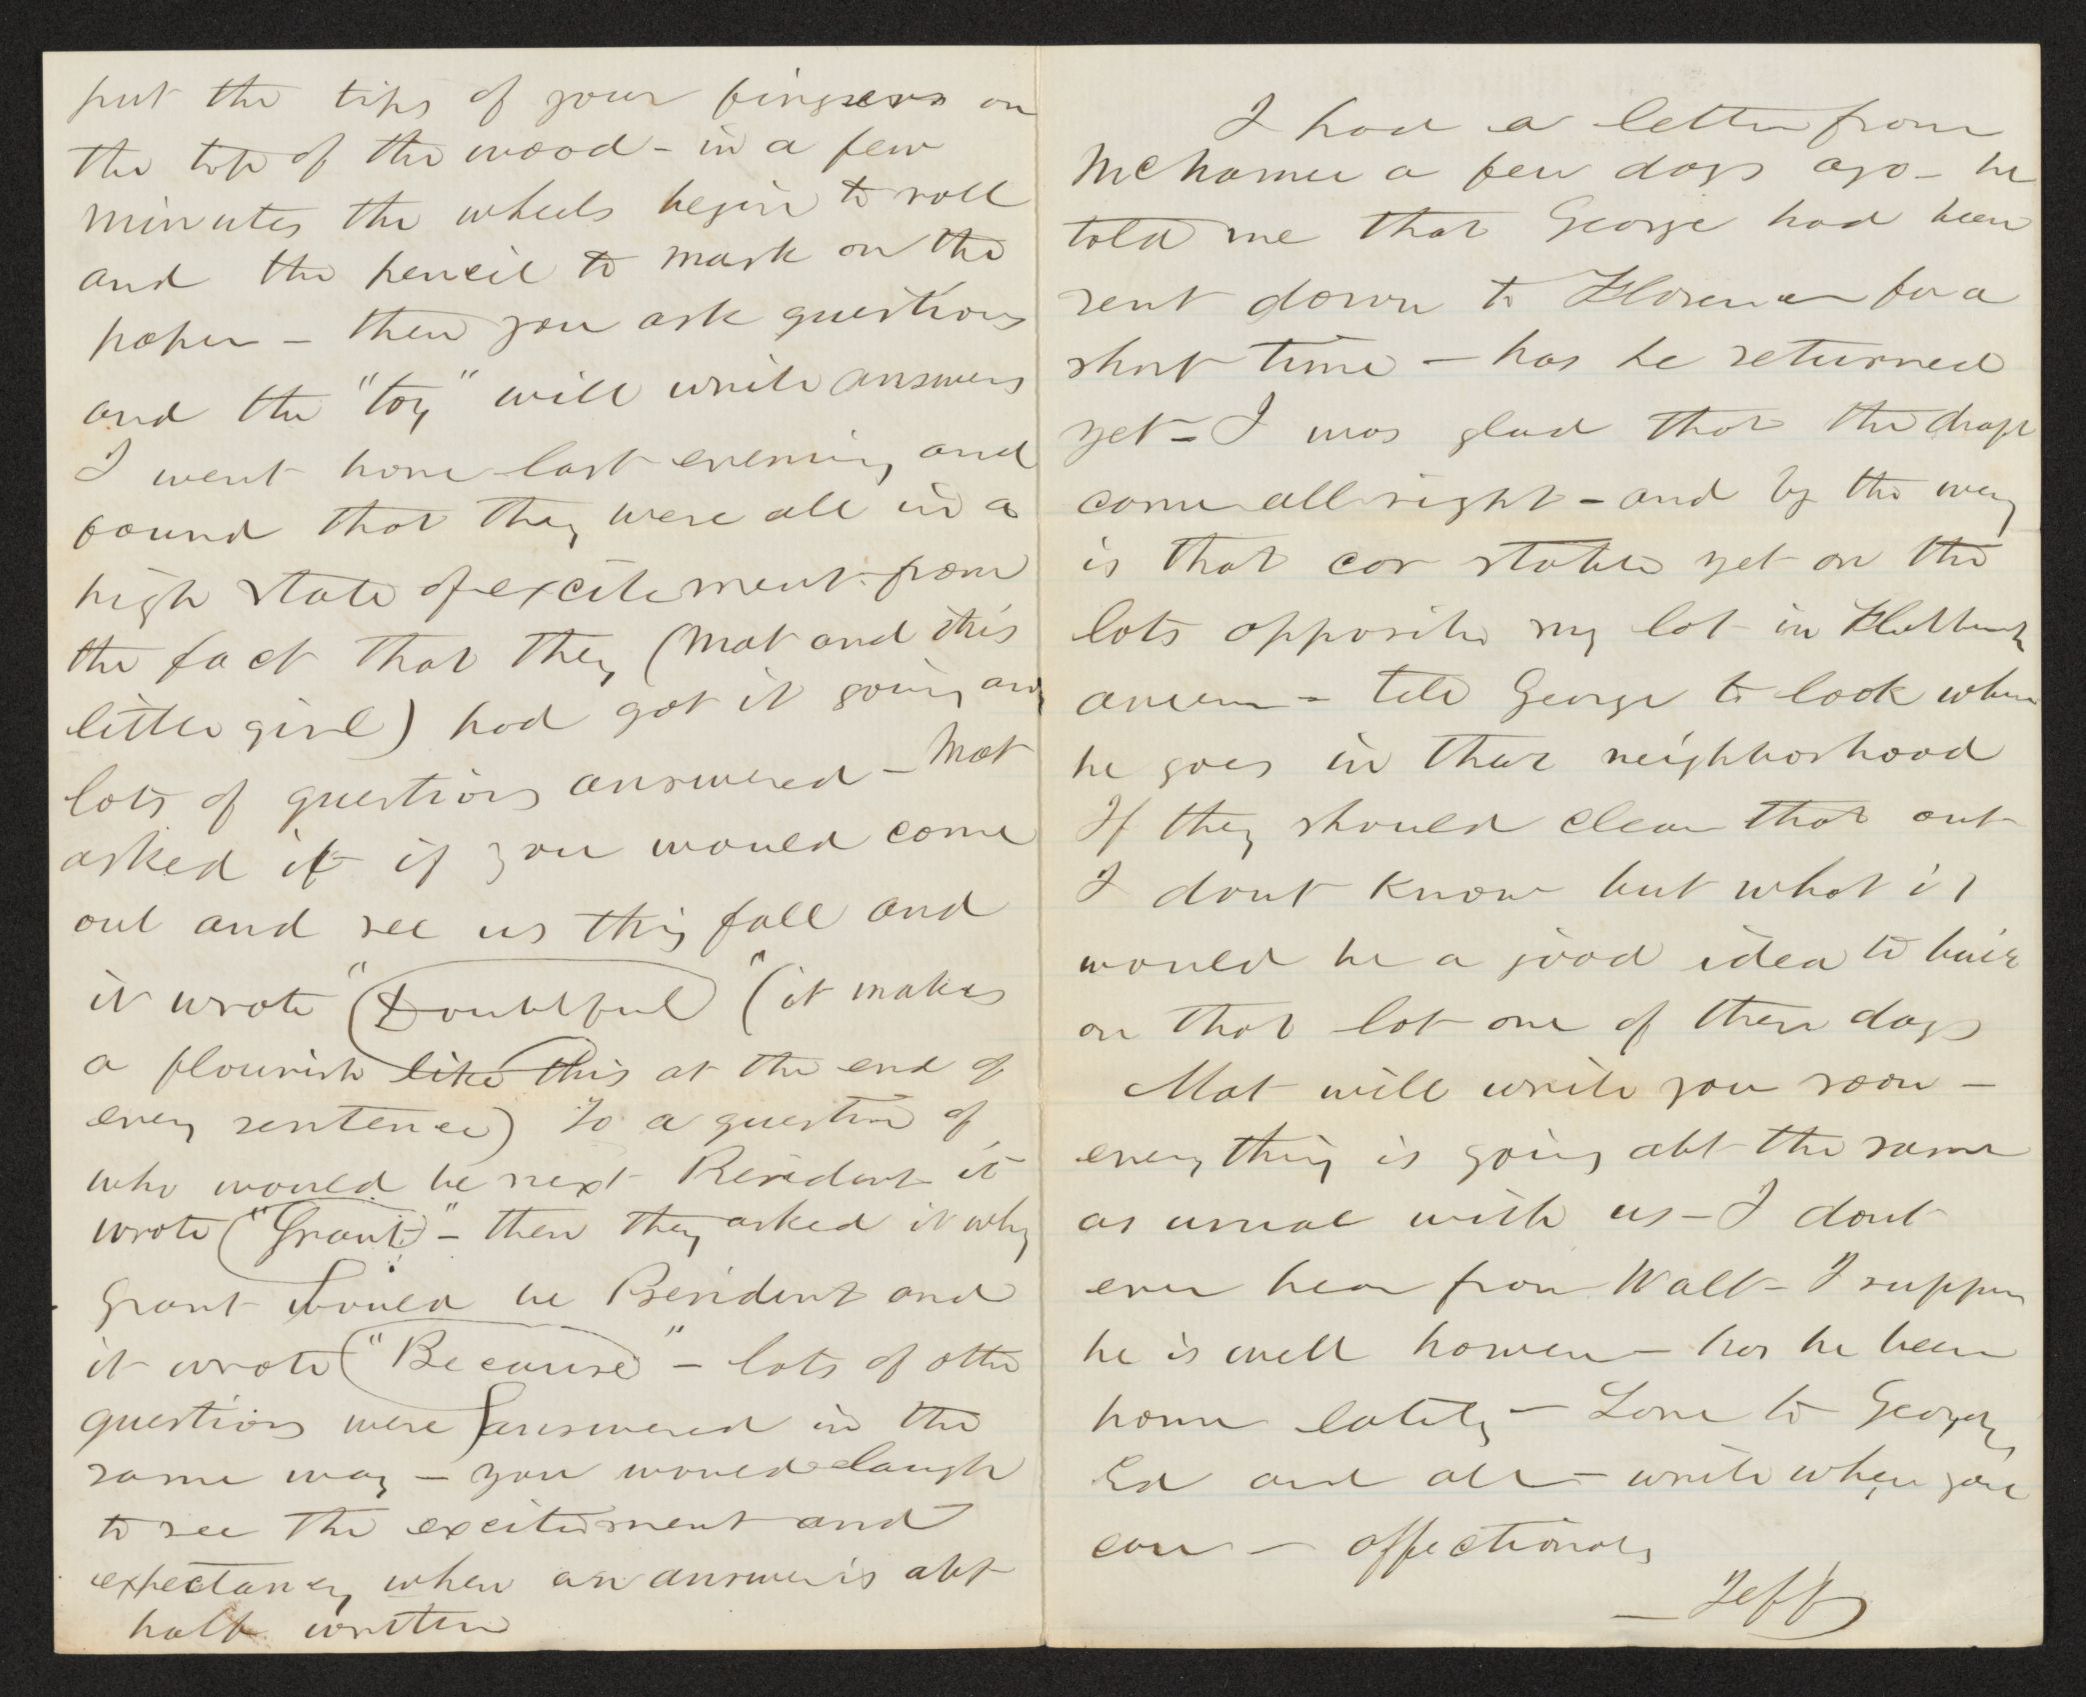 put the tips of your fingers on
the top of the wood – in a few
minutes the wheels begin to roll
and the pencil to mark on the
paper – then you ask questions
and the "toy" will write answers
I went home last evening and
found that they were all in a
high state of excitement from
the fact that they (Mat and this
little girl) had got it going and
lots of questions answered – Mat
asked it if you would come
out and see us this fall and
it wrote "Doubtful" (it makes
a flourish like this at the end of
every sentence) To a question of
who would be next President it
wrote "Grant" – then they asked it why
Grant would be President and
it wrote "Because" – lots of other
questions were answered in the
same way – you would laugh
to see the excitement and
expectancy when an answer is abt
half written
I had a letter from
McNamee a few days ago – he
told me that George had been
sent down to Florence for a
short time – has he returned
yet – I was glad that the draft
come all right – and by the way
is that car stable yet on the
lots opposite my lot in Flatbush
avenue – tell George to look when
he goes in that neighborhood
If they should clear that out
I dont know but what it
would be a good idea to build
on that lot one of these days
Mat will write you soon –
every thing is going abt the same
as usual with us – I dont
ever hear from Walt – I suppose
he is well however – has he been
home lately – Love to George,
Ed and all – write when you
can – affectionately
– Jeff